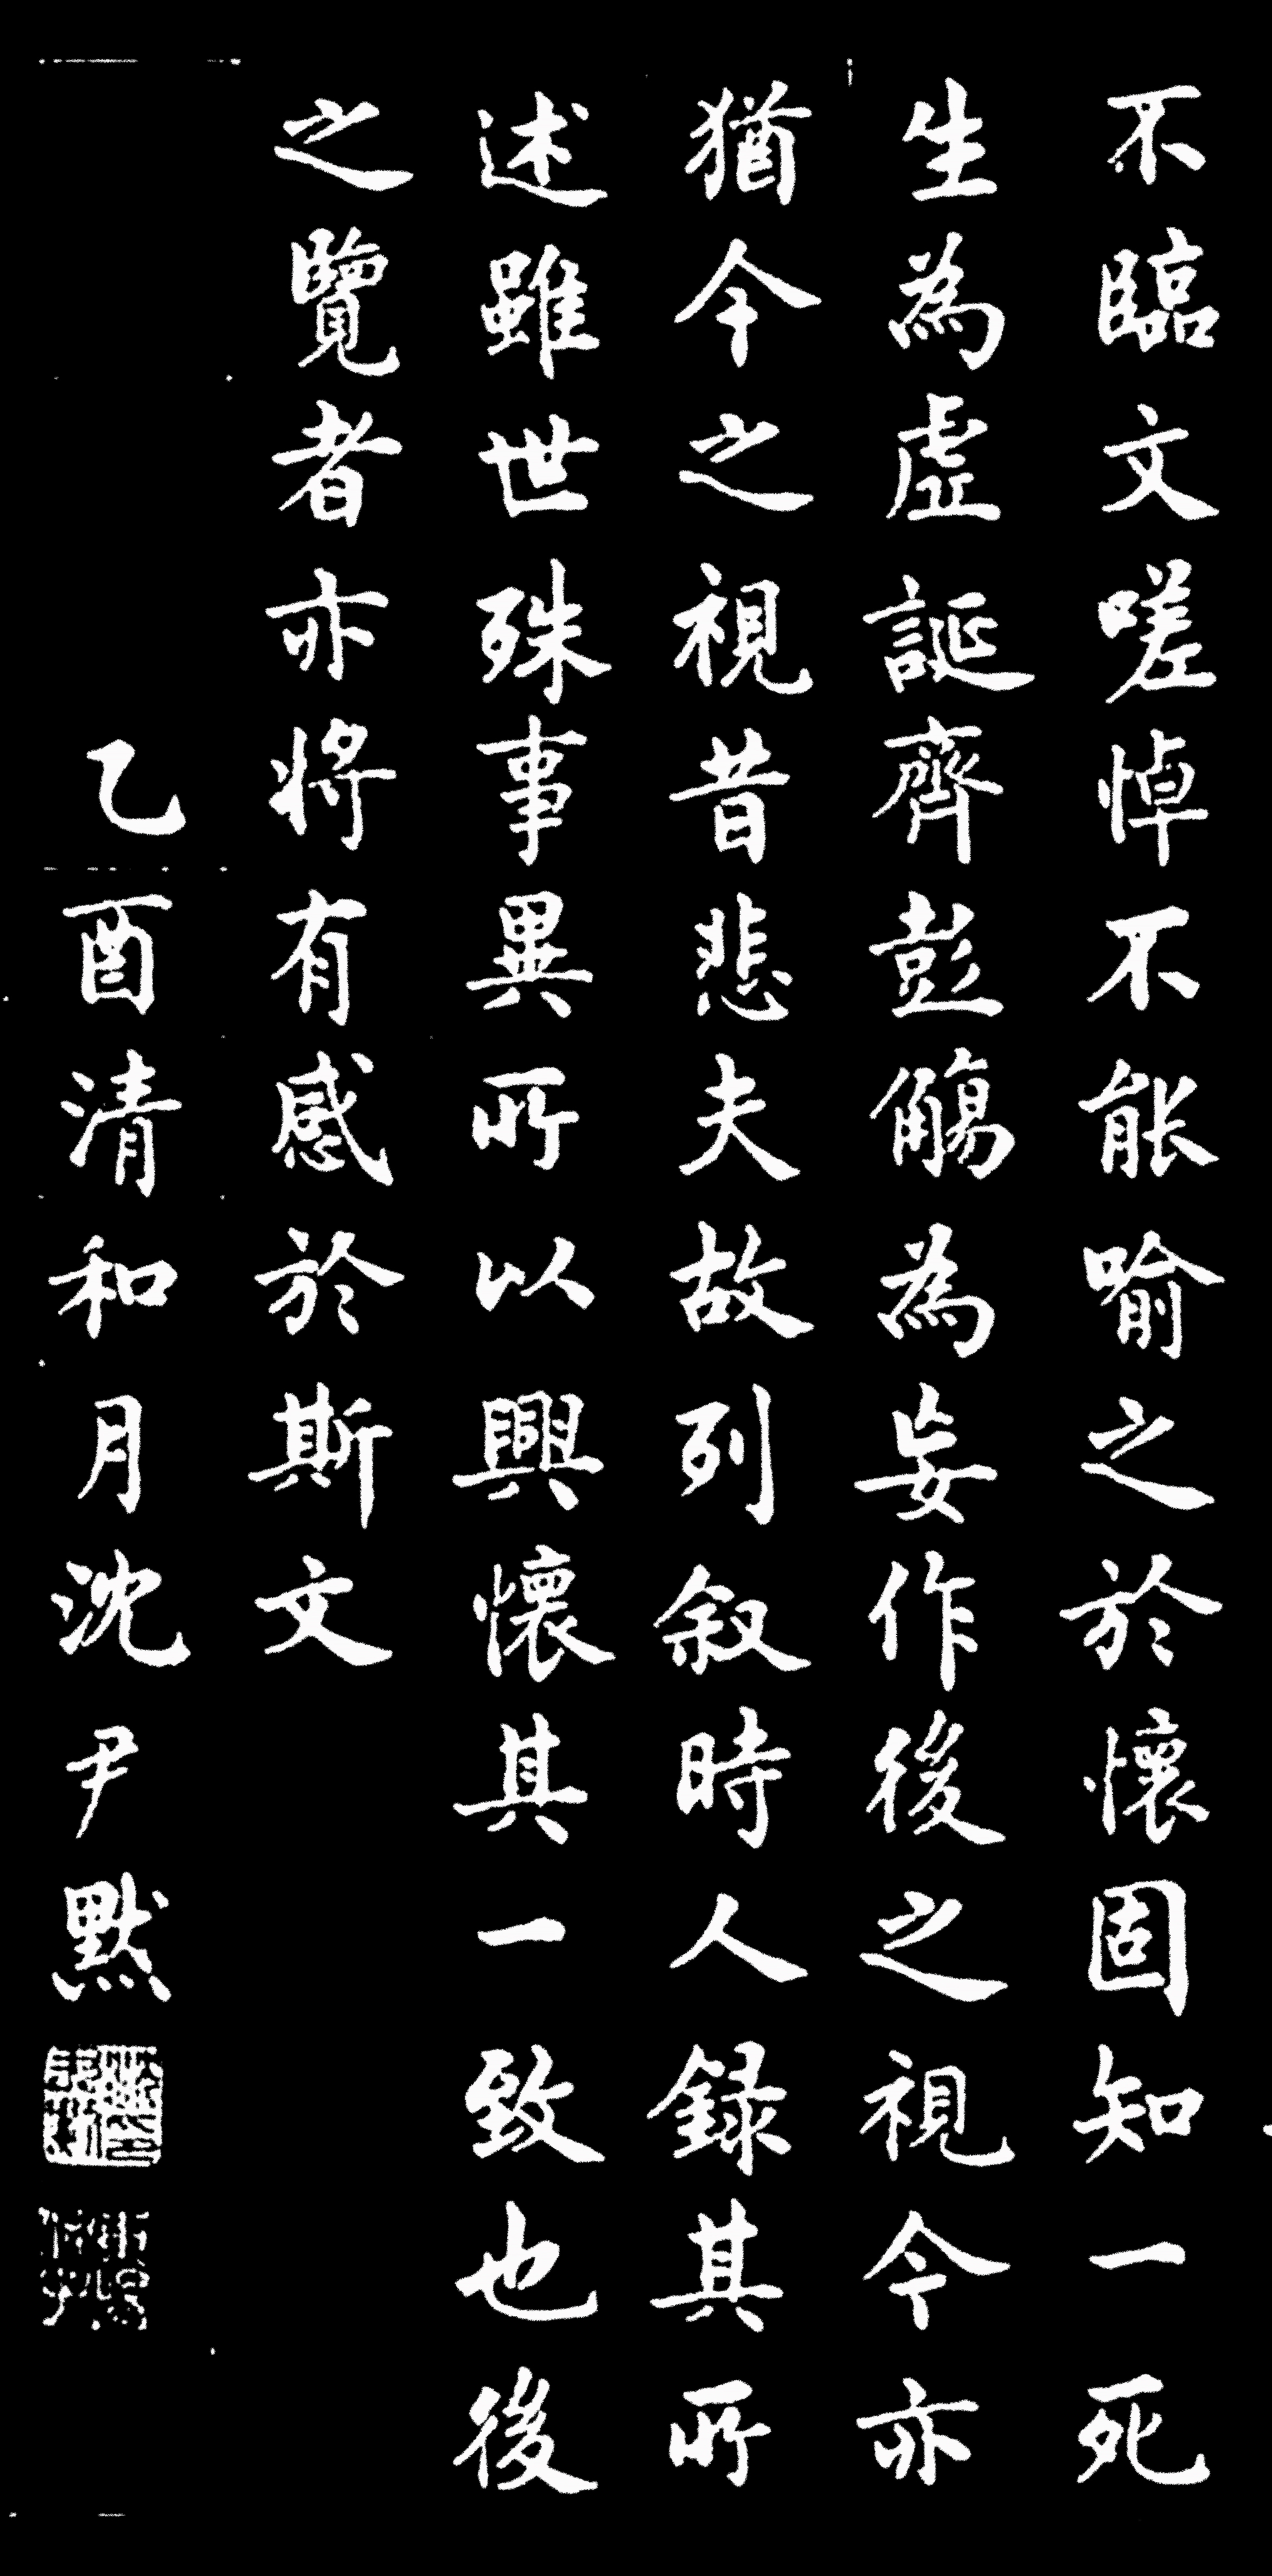 不臨文嗟悼不能喻之於懷固知一死
生為虛誕齊彭觴為妄作後之視今亦
猶今之視昔悲夫故列叙時人録其所
述雖世殊事異所以興懷其一致也後
之覽者亦將有感於斯文
乙酉清和月沈尹默